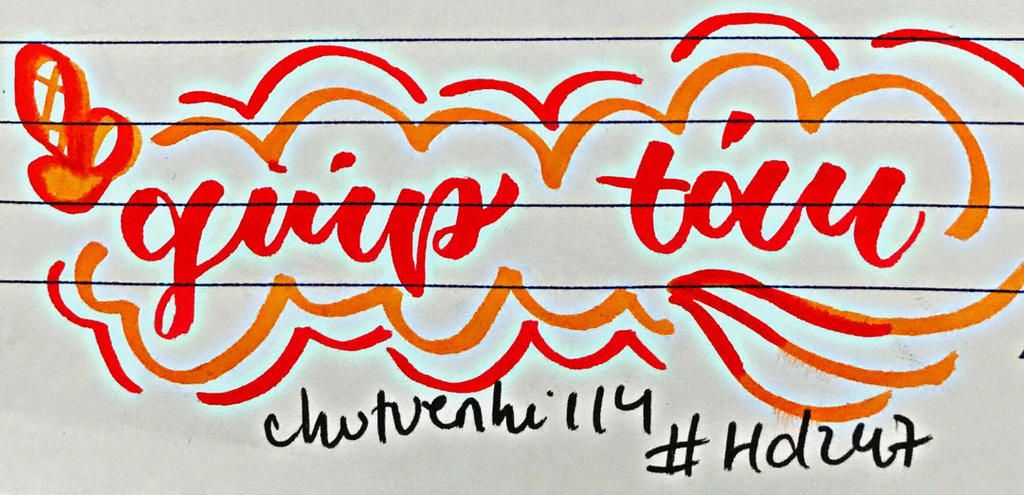 giúp táu
chutuenhi114
#Hd247